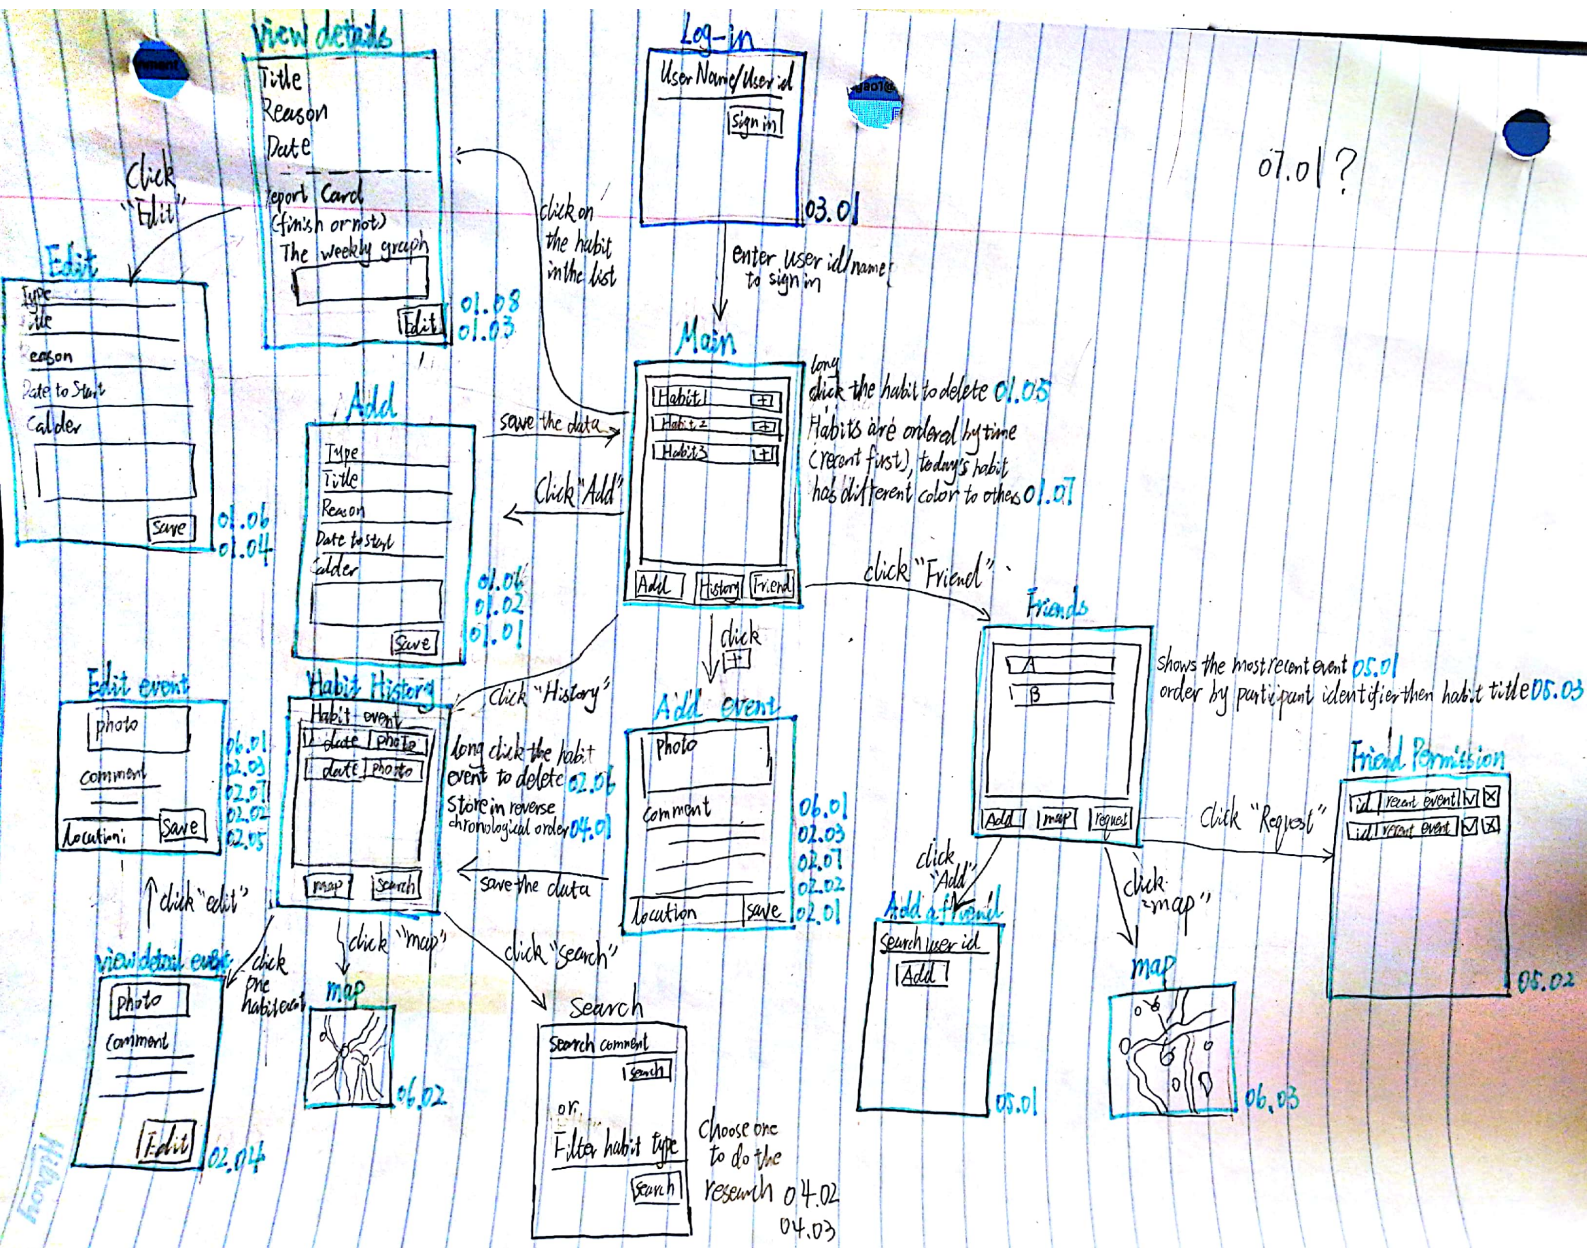 View details
Title
Reason
Date
eport Card
(finish or not)
The weekly graph
Edit
01.08
01.03
Click
"Edit"
Edit
Type
itle
eason
Date to Start
Calder
Save
01.06
01.04
Log-in
User Name/User id
Sign in
03.01
enter user id/name
to sign in
click on
the habit
in the list
07.01?
Main
Habit1 +
Habit2 +
Habit3 +
Add History Friend
long
click the habit to delete 01.05
Habits are ordered by time
(recent first), today's habit
has different color to others 01.07
save the data
Click "Add"
Add
Type
Title
Reason
Date to start
Calder
Save
01.06
01.02
01.01
click "Friend"
click
+
click "History"
Friends
A
B
Add map request
shows the most recent event 05.01
order by participant identifier then habit title 05.03
Click "Request"
Friend Permission
id recent event
id recent event
05.02
click
"Add"
Add a friend
Search user id
Add
05.01
click
"map"
map
06.03
Habit History
Habit event
date photo
date photo
map search
long click the habit
event to delete 02.06
Store in reverse
chronological order 04.01
Add event
photo
comment
location save
06.01
02.03
02.07
02.02
02.01
save the data
Edit event
photo
comment
location: Save
06.01
02.03
02.07
02.02
02.05
click "edit"
view detail event
photo
Comment
Edit
02.04
click
one
habit event
click "map"
map
06.02
click "search"
Search
Search comment
search
or
Filter habit type
search
choose one
to do the
research 04.02
04.03